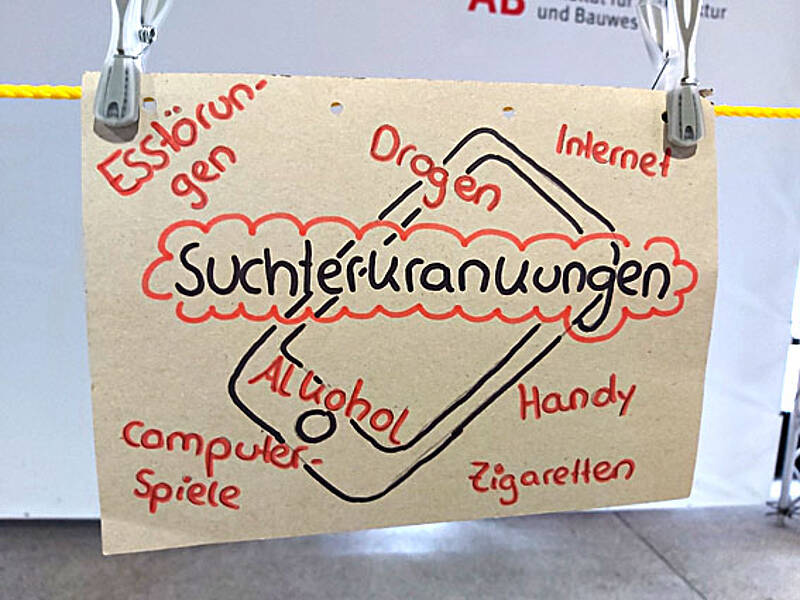 AB
und Bauwes
Esstörun-
gen
Drogen
Internet
Suchterkrankungen
Alkohol
Handy
Computer-
Spiele
Zigaretten